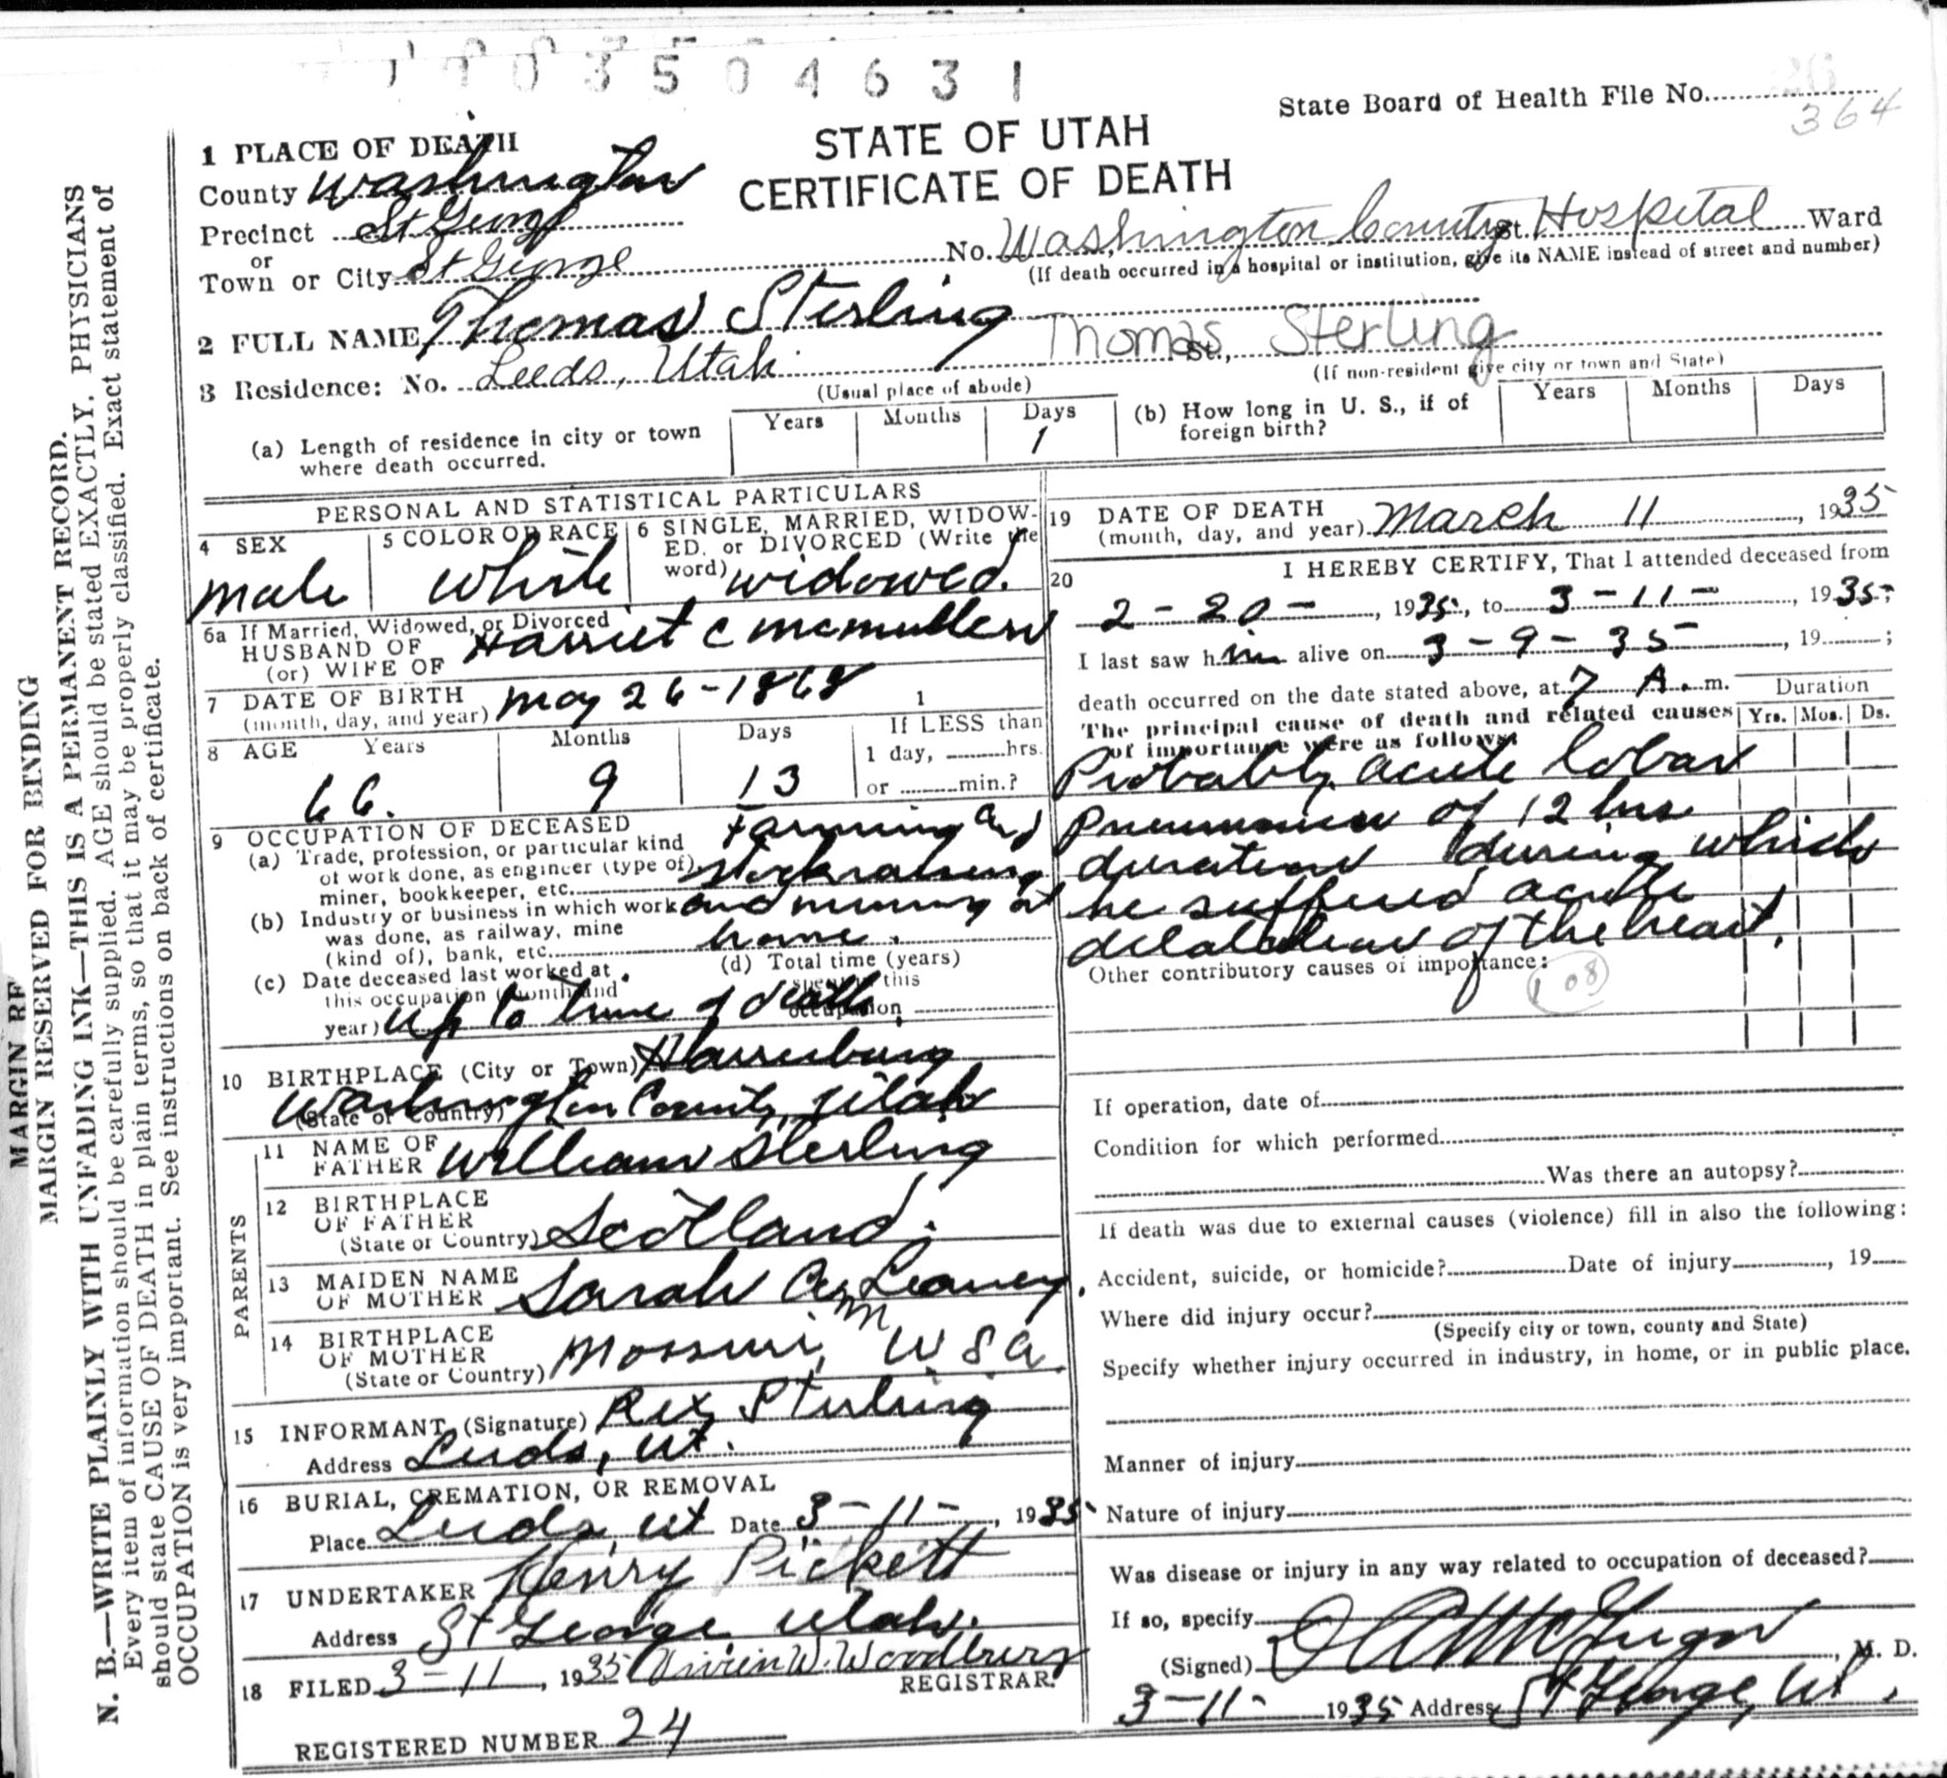 1003504631
State Board of Health File No.
364
STATE OF UTAH
CERTIFICATE OF DEATH
1 PLACE OF DEATH
County Washington
Precinct St George
or
Town or City St George No. Washington County St. Hospital Ward
(If death occurred in a hospital or institution, give its NAME instead of street and number)
2 FULL NAME Thomas Sterling Thomas Sterling
3 Residence: No. Leeds, Utah St.,
(Usual place of abode) (If non-resident give city or town and State)
(a) Length of residence in city or town where death occurred. Years Months Days 1
(b) How long in U. S., if of foreign birth? Years Months Days
PERSONAL AND STATISTICAL PARTICULARS
4 SEX male
5 COLOR OR RACE White
6 SINGLE, MARRIED, WIDOW-
ED, or DIVORCED (Write the
word) widowed.
6a If Married, Widowed, or Divorced
HUSBAND OF Harriet C McMullen
(or) WIFE OF
7 DATE OF BIRTH
(month, day, and year) May 26-1868 1
8 AGE Years 66. Months 9 Days 13
If LESS than
1 day, hrs.
or min.?
9 OCCUPATION OF DECEASED
(a) Trade, profession, or particular kind
of work done, as engineer (type of),
miner, bookkeeper, etc.
Farming and
stockraising
(b) Industry or business in which work
was done, as railway, mine
(kind of), bank, etc.
and mining at
home.
(c) Date deceased last worked at
this occupation (month and
year) up to time of death.
(d) Total time (years)
spent in this
occupation
10 BIRTHPLACE (City or Town) Harrisburg
(State or Country) Washington County, Utah
PARENTS
11 NAME OF
FATHER William Sterling
12 BIRTHPLACE
OF FATHER
(State or Country) Scotland.
13 MAIDEN NAME
OF MOTHER Sarah Leaney
14 BIRTHPLACE
OF MOTHER
(State or Country) U S A
15 INFORMANT (Signature) Rex Sterling
Address Leeds, Ut.
16 BURIAL, CREMATION, OR REMOVAL
Place Leeds, Ut Date 3-11-, 1935
17 UNDERTAKER Henry Pickett
Address St George Utah.
18 FILED 3-11, 1935 W. Woodbury
REGISTRAR.
REGISTERED NUMBER 24
19 DATE OF DEATH
(month, day, and year) March 11, 1935
20 I HEREBY CERTIFY, That I attended deceased from
2-20-, 1935, to 3-11-, 1935;
I last saw him alive on 3-9-35, 19 ;
death occurred on the date stated above, at 7 A.m.
The principal cause of death and related causes
of importance were as follows:
Duration
Yrs. Mos. Ds.
Probably acute lobar
pneumonia of 12 hrs
duration during which
he suffered acute
dilatation of the heart.
Other contributory causes of importance:
108
If operation, date of
Condition for which performed
Was there an autopsy?
If death was due to external causes (violence) fill in also the following:
Accident, suicide, or homicide? Date of injury , 19
Where did injury occur?
(Specify city or town, county and State)
Specify whether injury occurred in industry, in home, or in public place.
Manner of injury
Nature of injury
Was disease or injury in any way related to occupation of deceased?
If so, specify
(Signed) , M. D.
3-11- 1935 Address St George, Ut.
MARGIN RE
MARGIN RESERVED FOR BINDING
N. B.—WRITE PLAINLY WITH UNFADING INK—THIS IS A PERMANENT RECORD.
Every item of information should be carefully supplied. AGE should be stated EXACTLY. PHYSICIANS
should state CAUSE OF DEATH in plain terms, so that it may be properly classified. Exact statement of
OCCUPATION is very important. See instructions on back of certificate.